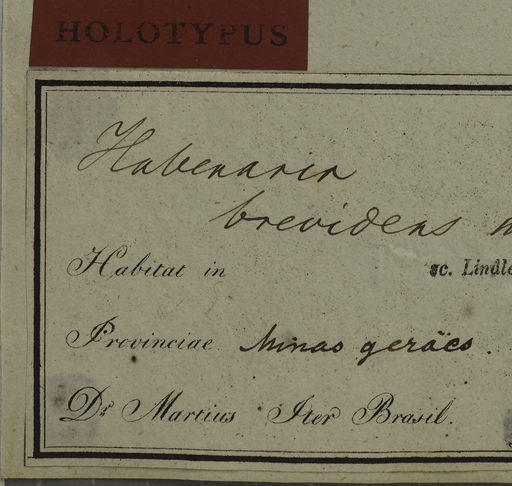 HOLOTYPUS
Habenaria
brevidens
Habitat in
sc. Lindle
Provinciae Minas geräes.
Dr Martius Iter Brasil.